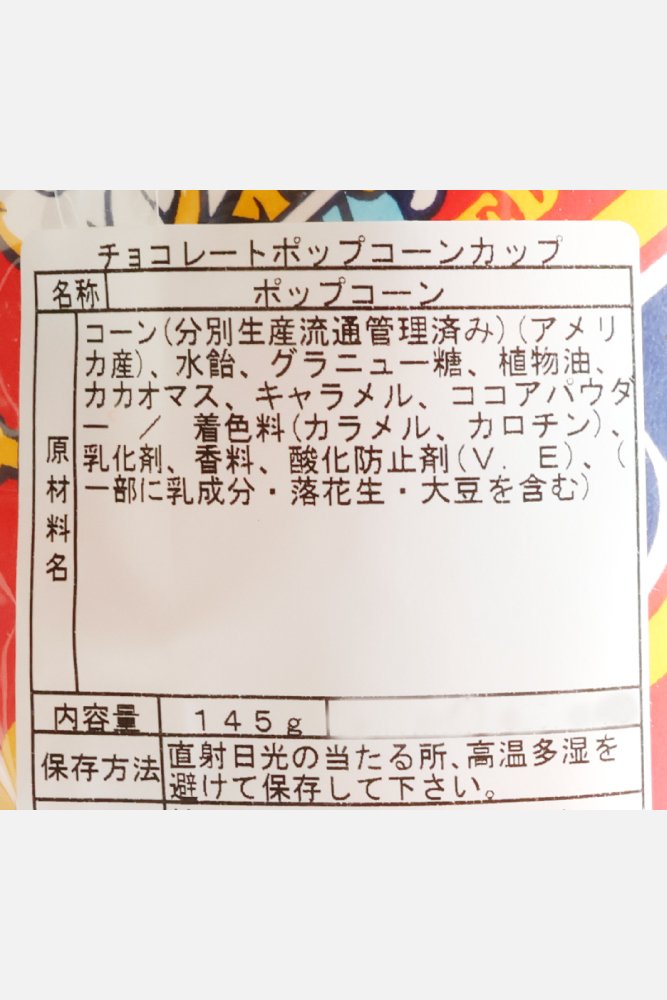 チョコレートポップコーンカップ
名称 ポップコーン
原材料名
コーン(分別生産流通管理済み)(アメリ
カ産)、水飴、グラニュー糖、植物油、
カカオマス、キャラメル、ココアパウダ
ー / 着色料(カラメル、カロチン)、
乳化剤、香料、酸化防止剤(V. E)、(
一部に乳成分・落花生・大豆を含む)
内容量 145g
保存方法 直射日光の当たる所、高温多湿を
避けて保存して下さい。